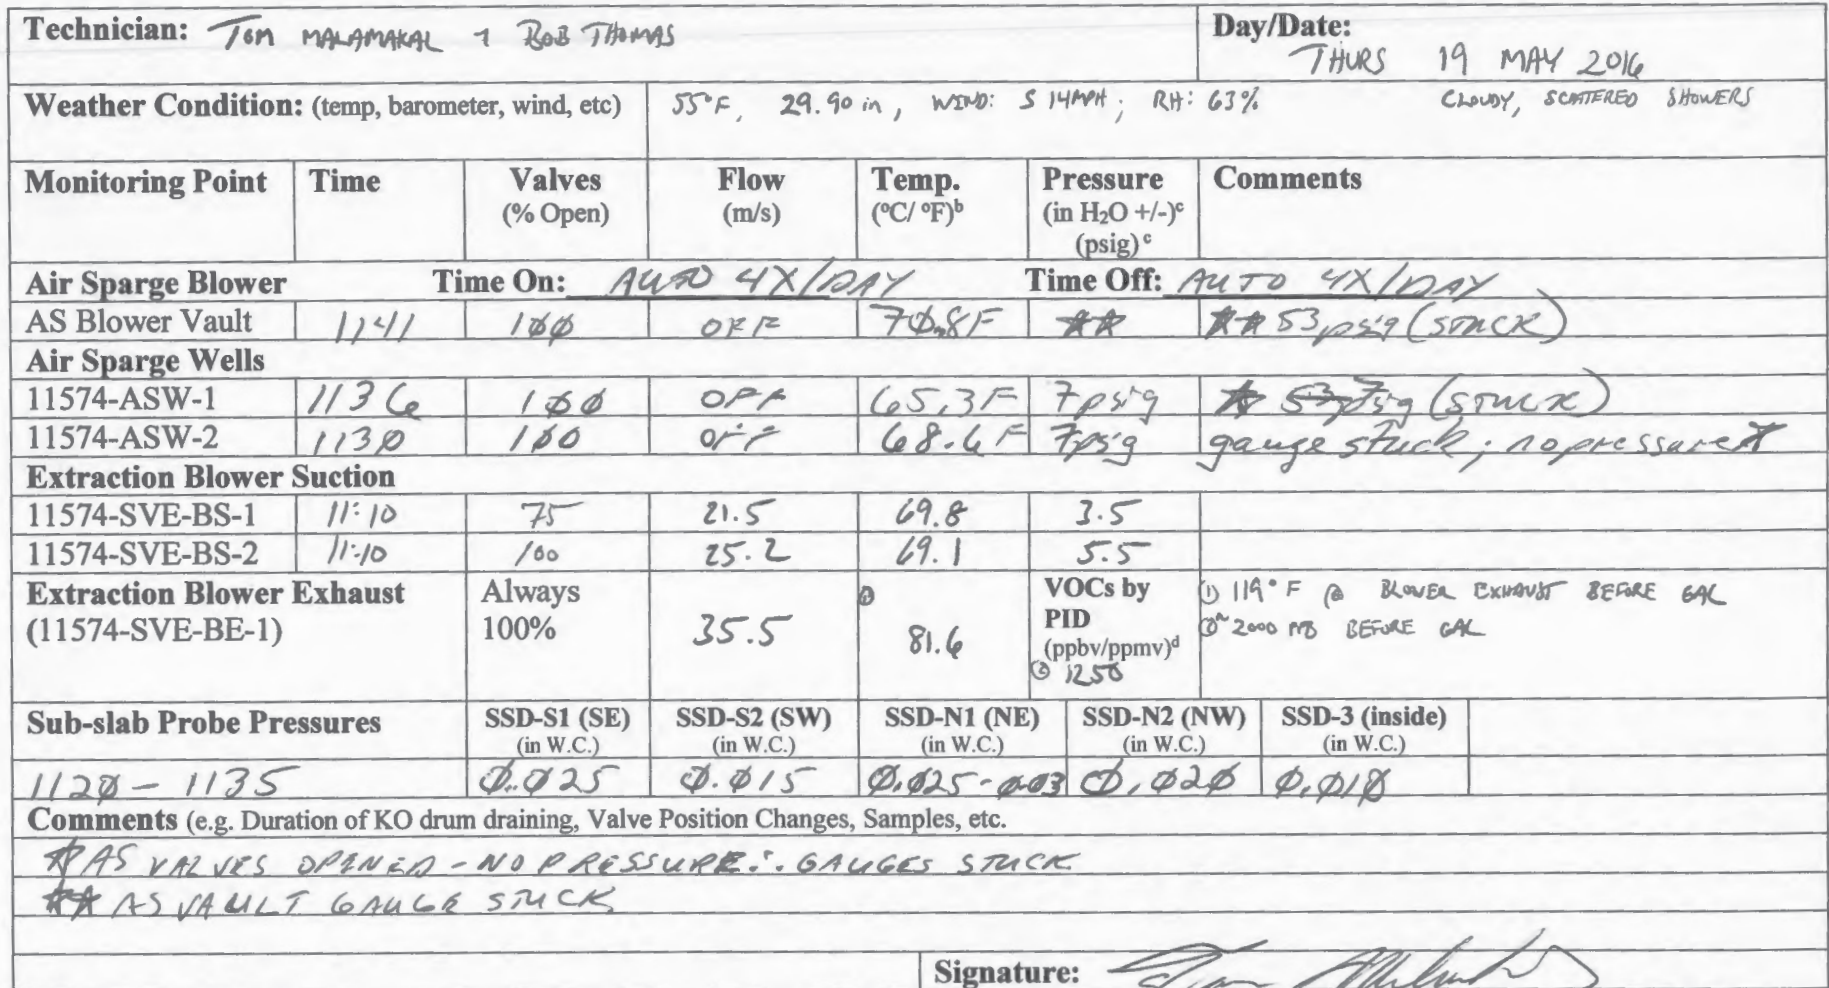 Technician: TOM MALAMAKAL + BOB THOMAS Day/Date: THURS 19 MAY 2016
Weather Condition: (temp, barometer, wind, etc) 55°F, 29.90 in, WIND: S 14MPH; RH: 63% CLOUDY, SCATTERED SHOWERS
Monitoring Point Time Valves (% Open) Flow (m/s) Temp. (ºC/ ºF)b Pressure (in H2O +/-)c (psig) c Comments
Air Sparge Blower Time On: AUTO 4X/DAY Time Off: AUTO 4X/DAY
AS Blower Vault 1141 100 OFF 70.8F ** ** 53 psig (STUCK)
Air Sparge Wells
11574-ASW-1 1136 100 OFF 65.3F 7psig * 7psig (STUCK)
11574-ASW-2 1130 100 OFF 68.6F 7psig gauge stuck; no pressure*
Extraction Blower Suction
11574-SVE-BS-1 11:10 75 21.5 69.8 3.5
11574-SVE-BS-2 11:10 100 25.2 69.1 5.5
Extraction Blower Exhaust (11574-SVE-BE-1) Always 100% 35.5 ① 81.6 VOCs by PID (ppbv/ppmv)d ② 1250 ① 119°F @ BLOWER EXHAUST BEFORE GAC
② ~2000 BEFORE GAC
Sub-slab Probe Pressures SSD-S1 (SE) (in W.C.) SSD-S2 (SW) (in W.C.) SSD-N1 (NE) (in W.C.) SSD-N2 (NW) (in W.C.) SSD-3 (inside) (in W.C.)
1120 - 1135 0.025 0.015 0.025-0.03 0.020 0.010
Comments (e.g. Duration of KO drum draining, Valve Position Changes, Samples, etc.
* AS VALVES OPENED - NO PRESSURE ∴ GAUGES STUCK
** AS VAULT GAUGE STUCK
Signature: